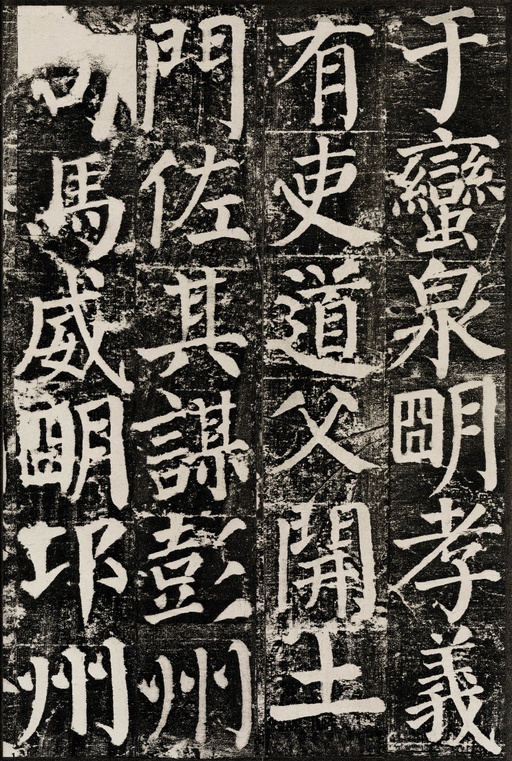 于蠻泉朙孝義
有吏道父開土
門佐其謀彭州
司馬威朙邛州